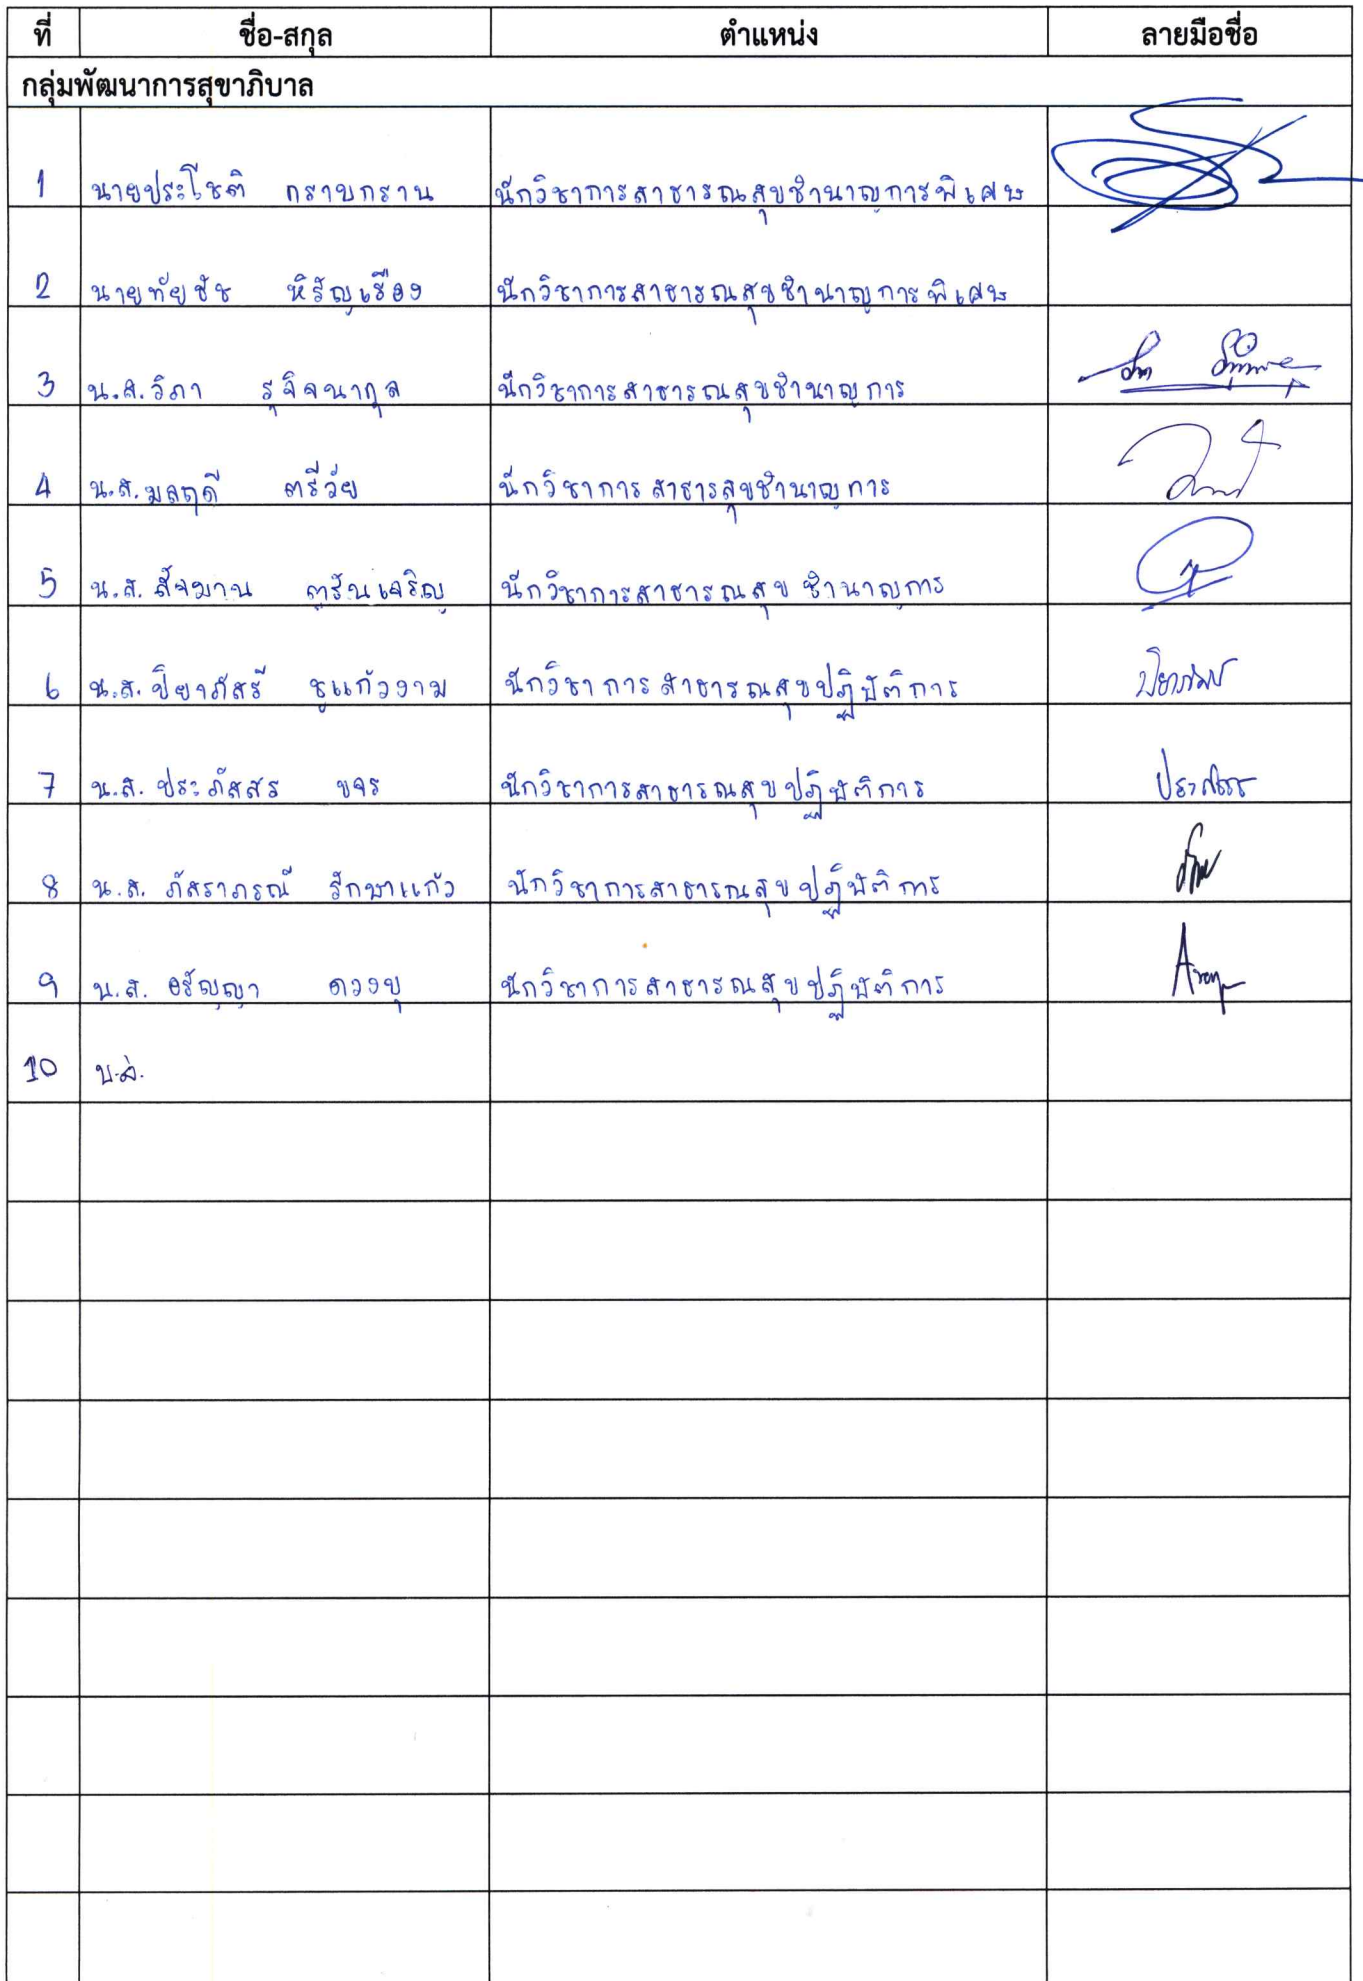 ที่ ชื่อ-สกุล ตำแหน่ง ลายมือชื่อ
กลุ่มพัฒนาการสุขาภิบาล
1 นายประโชติ กราบกราน นักวิชาการสาธารณสุขชำนาญการพิเศษ
2 นายทัยธัช หิรัญเรือง นักวิชาการสาธารณสุขชำนาญการพิเศษ
3 น.ส.วิภา รุจิจนากุล นักวิชาการสาธารณสุขชำนาญการ
4 น.ส.มลฤดี ตรีวัย นักวิชาการสาธารสุขชำนาญการ
5 น.ส. สัจมาน ตรันเจริญ นักวิชาการสาธารณสุข ชำนาญการ
6 น.ส. ปิยาภัสร์ ชูแก้วงาม นักวิชาการสาธารณสุขปฏิบัติการ
7 น.ส. ประภัสสร ขจร นักวิชาการสาธารณสุขปฏิบัติการ ประภัสสร
8 น.ส. ภัสราภรณ์ รักษาแก้ว นักวิชาการสาธารณสุขปฏิบัติการ
9 น.ส. อรัญญา ดวงบุ นักวิชาการสาธารณสุขปฏิบัติการ
10 น.ส.